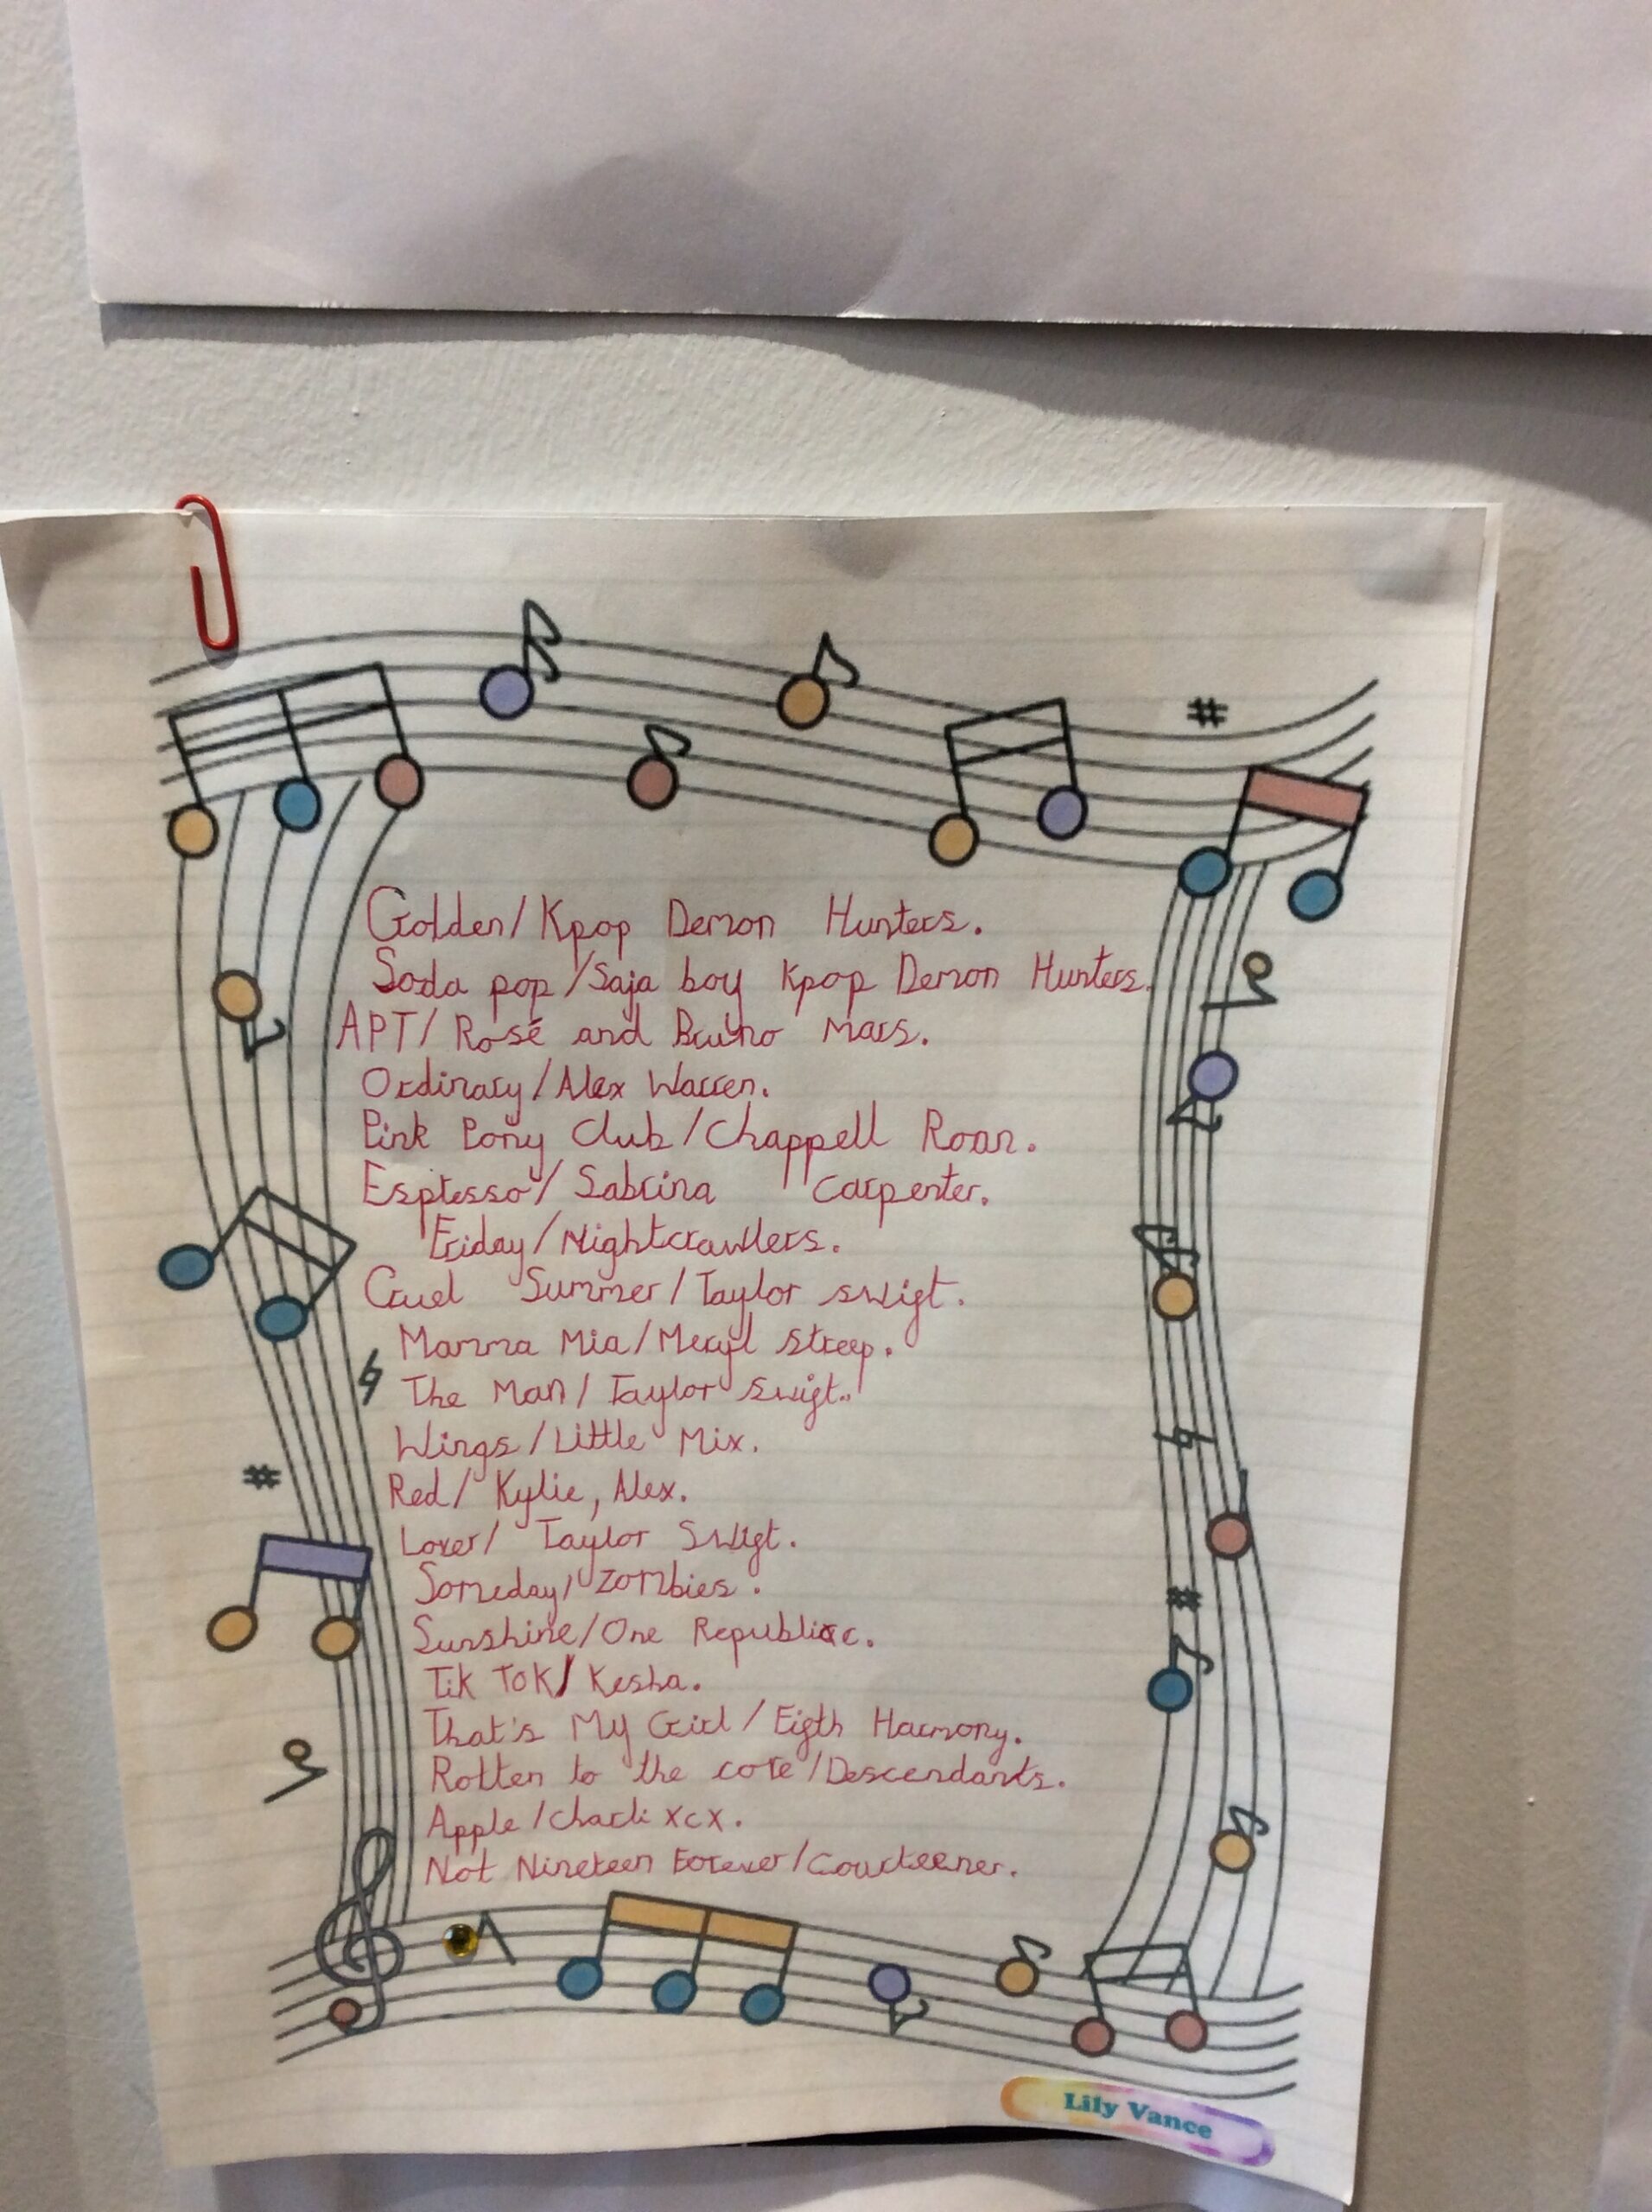 Golden/Kpop Demon Hunters.
Soda pop/Saja boy Kpop Demon Hunters.
APT/Rosé and Bruno Mars.
Ordinary/Alex Warren.
Pink Pony Club/Chappell Roan.
Espresso/Sabrina Carpenter.
Friday/Nightcrawlers.
Cruel Summer/Taylor swift.
Mamma Mia/Meryl Streep.
The Man/Taylor Swift.
Wings/Little Mix.
Red/Kylie, Alex.
Lover/Taylor Swift.
Someday/Zombies.
Sunshine/One Republic.
Tik Tok/Kesha.
That's My Girl/Eigth Harmony.
Rotten to the core/Descendants.
Apple/charli xcx.
Not Nineteen Forever/Courteener.
Lily Vance